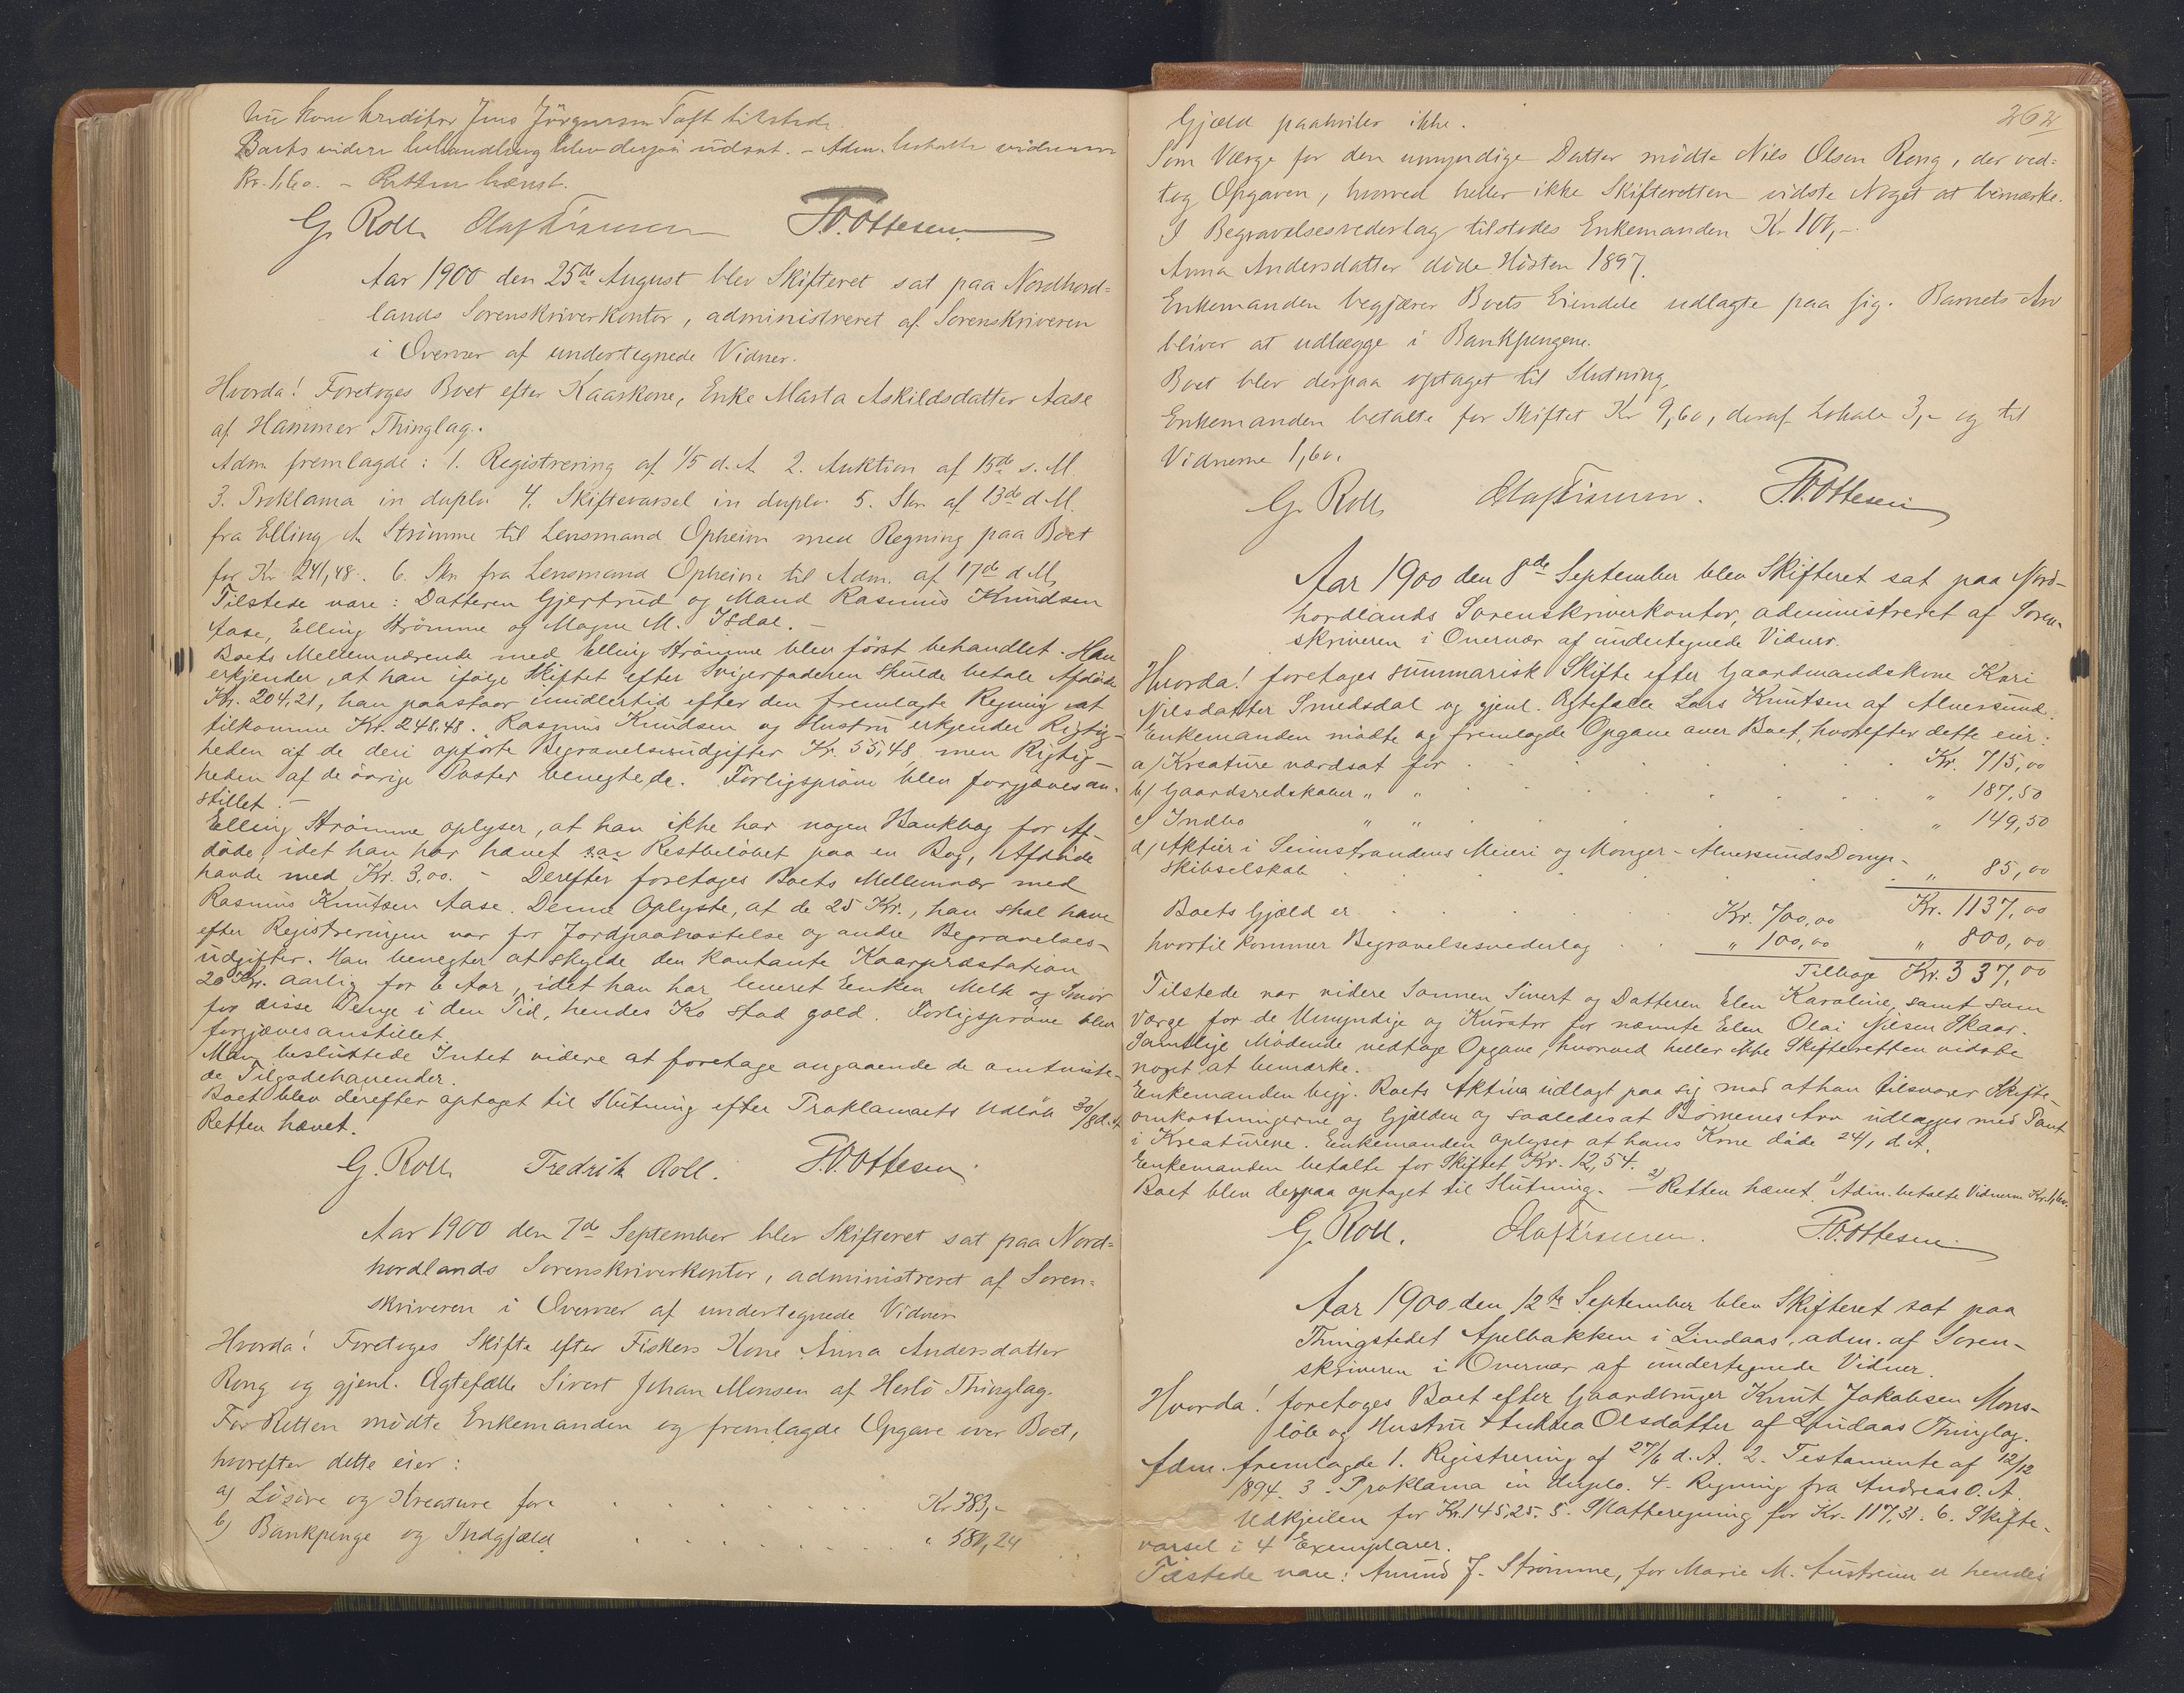 nu kom Kreditor Jens Jörgensen Toft tilstede.
Boets videre behandling blev derpaa udsat. - Adm. betalte vidnerne
Kr. 1,60. - Retten hævet.
G. Roll Olaf F. Ottesen
Aar 1900 den 25de August blev Skifteret sat paa Nordhord=
lands Sorenskriverkontor, administreret af Sorenskriveren
i Overvær af undertegnede Vidner.
Hvorda! Foretoges Boet efter Kaarkone, Enke Marta Askildsdatter Aase
af Hammer Thinglag.
Adm. fremlagde: 1. Registrering af 1/5 d. A. 2. Auktion af 15de s. M.
3. Proklama in duplo 4. Skiftevarsel in duplo 5. Skr. af 13de d M.
fra Elling A Strömme til Lensmand Opheim med Regning paa Boet
for Kr 241,48. 6. Skr. fra Lensmand Opheim til Adm. af 17de d M.
Tilstede vare: Datteren Gjertrud og Mand Rasmus Knudsen
Aase, Elling Strömme og Magne M. Isdal. -
Boets Mellemværende med Elling Strömme blev först behandlet. Han
erkjender, at han ifölge Skiftet efter Svigerfaderen skulde betale Afdöde
Kr. 204,21, han paastaar imidlertid efter den fremlagte Regning at
tilkomme Kr. 248,48. Rasmus Knudsen og Hustru erkjender Rigtig-
heden af de deri opförte Begravelsesudgifter Kr. 55,48, men Rigtig-
heden af de övrige Poster benegtede. Forligspröve blev forgjæves an-
stillet. -
Elling Strömme oplyser, at han ikke har nogen Bankbog for Af-
döde, idet han har hævet Restbelöbet paa en Bog, Afdöde
havde med Kr. 3,00. - Derefter foretoges Boets Mellemvær med
Rasmus Knutsen Aase. Denne Oplyste, at de 25 Kr., han skal have
efter Registreringen var for Jordpaakastelse og andre Begravelses-
udgifter. Han benegter at skylde den kontante Kaarpræstation
20 Kr. aarlig for 6 Aar, idet han har leveret Enken Melk og Smör
for disse Penge i den Tid, hendes Ko stod gold. Forligspröve blev
forgjæves anstillet.
Man besluttede Intet videre at foretage angaaende de omtviste-
de Tilgodehavender.
Boet blev derefter optaget til Slutning efter Proklamaets Udlöb 30/8 d. A.
Retten hævet.
G. Roll Fredrik Roll. F. Ottesen
Aar 1900 den 7de September blev Skifteret sat paa Nord=
hordlands Sorenskriverkontor, administreret af Soren=
skriveren i Overvær af undertegnede Vidner
Hvorda! Foretoges Skifte efter Fiskers Kone Anna Andersdatter
Rong og gjenl. Ægtefælle Sivert Johan Monsen af Herlö Thinglag.
For Retten mödte Enkemanden og fremlagde Opgave over Boet,
hvorefter dette eier:
a) Lösöre og Kreature for . . . Kr 383,-
b) Bankpenge og Indgjæld . . . " 581,24
262
Gjæld paahviler ikke.
Som Værge for den umyndige Datter mödte Nils Olsen Rong, der ved=
tog Opgaven, hvorved heller ikke Skifteretten vidste Noget at bemærke.
I Begravelsesvederlag tilstodes Enkemanden Kr. 100,-.
Anna Andersdatter döde Hösten 1897.
Enkemanden begjærer Boets Eiendele udlagte paa sig. Barnets Arv
bliver at udlægge i Bankpengene.
Boet blev derpaa optaget til Slutning.
Enkemanden betalte for Skiftet Kr 9,60, deraf Lokale 3,- og til
Vidnerne 1,60.
G. Roll Olaf F. Ottesen
Aar 1900 den 8de September blev Skifteret sat paa Nord-
hordlands Sorenskriverkontor, administreret af Soren-
skriveren i Overvær af undertegnede Vidner.
Hvorda! foretoges summarisk Skifte efter Gaardmandskone Kari
Nilsdatter Smedsdal og gjenl. Ægtefælle Lars Knutsen af Alversund.
Enkemanden mödte og fremlagde Opgave over Boet, hvorefter dette eier:
a) Kreature værdsat for . . . Kr. 715,00
b) Gaardsredskaber " " . . . " 187,50
c) Indbo " " . . . " 149,50
d) Aktier i Seimstrandens Meieri og Manger - Alversunds Damp-
skibselskab . . . " 85,00
Kr. 1137,00
Boets Gjæld er . . . Kr. 700,00
hvortil kommer Begravelsesvederlag . . " 100,00 " 800,00
Tilbage Kr. 337,00
Tilstede var videre Sönnen Sivert og Datteren Elen Karoline, samt som
Værge for de Umyndige og Kurator for nævnte Elen Olai Nilsen Skaar.
Samtlige Mödende vedtoge Opgave, hvorved heller ikke Skifteretten vidste
noget at bemærke.
Enkemanden begj. Boets Aktiva udlagt paa sig mod at han tilsvarer Skifte-
omkostningerne og Gjælden og saaledes at Börnenes Arv udlægges med Pant
i Kreaturene. Enkemanden oplyser at hans Kone döde 24/1 d. A.
Enkemanden betalte for Skiftet Kr. 12,54.
Boet blev derpaa optaget til Slutning. - 2) Retten hævet. 1) Adm. betalte Vidnerne Kr. 1,60.
G. Roll. Olaf F. Ottesen
Aar 1900 den 12te September blev Skifteret sat paa
Thingstedet Apelbakken i Lindaas, adm. af Soren-
skriveren i Overvær af undertegnede Vidner.
Hvorda! foretoges Boet efter Gaardbruger Knut Jakobsen Mons-
löb og Hustru Andrea Olsdatter af Lindaas Thinglag.
Adm. fremlagde 1. Registrering af 27/6 d. A. 2. Testamente af 12/12
1894. 3. Proklama in duplo. 4. Regning fra Andreas O. A.
Udkjeilen for Kr. 145,25. 5. Skatteregning for Kr. 117,31. 6. Skifte-
varsel i 4 Exemplarer.
Tilstede vare: Amund J. Strömme, for Marie M. Austreim er hendes